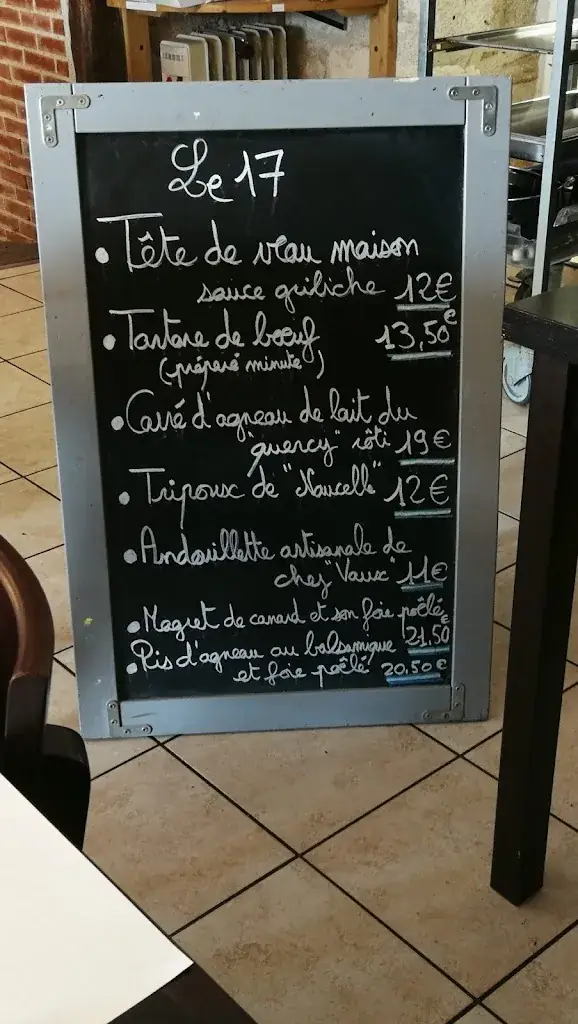 Le 17
• Tête de veau maison
sauce gribiche 12€
• Tartare de boeuf 13,50€
(préparé minute)
• Carré d'agneau de lait du
"quercy" rôti 19€
• Tripoux de "Naucelle" 12€
• Andouillette artisanale de
chez "Vaux" 11€
• Magret de canard et son foie poêlé
21,50€
• Ris d'agneau au balsamique
et foie poêlé 20,50€